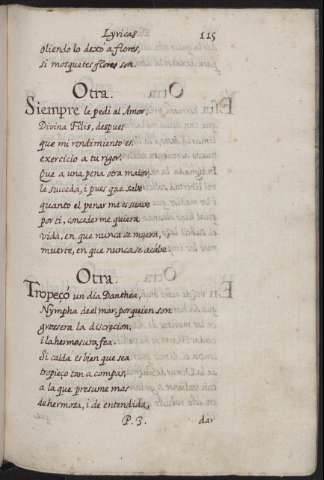 Lyricas 115
oliendo lo dexo a flores,
si mosquetes flores son.
Otra.
Siempre le pedi al Amor,
Divina Filis, despues
que mi rendimiento es
exercicio a tu rigor,
Que a una pena otra maior
le suceda, i pues que sabe
quanto el penar me es suave
por ti, concederme quiera
vida, en que nunca se muera,
muerte, en que nunca se acabe.
Otra.
Tropeçó un dia Danthea,
Nympha de el mar, por quien son
grossera la discrecion,
i la hermosura fea.
Si caida es bien que sea
tropieço tan a compas,
a la que presume mas
de hermosa, i de entendida,
P. 3. dar